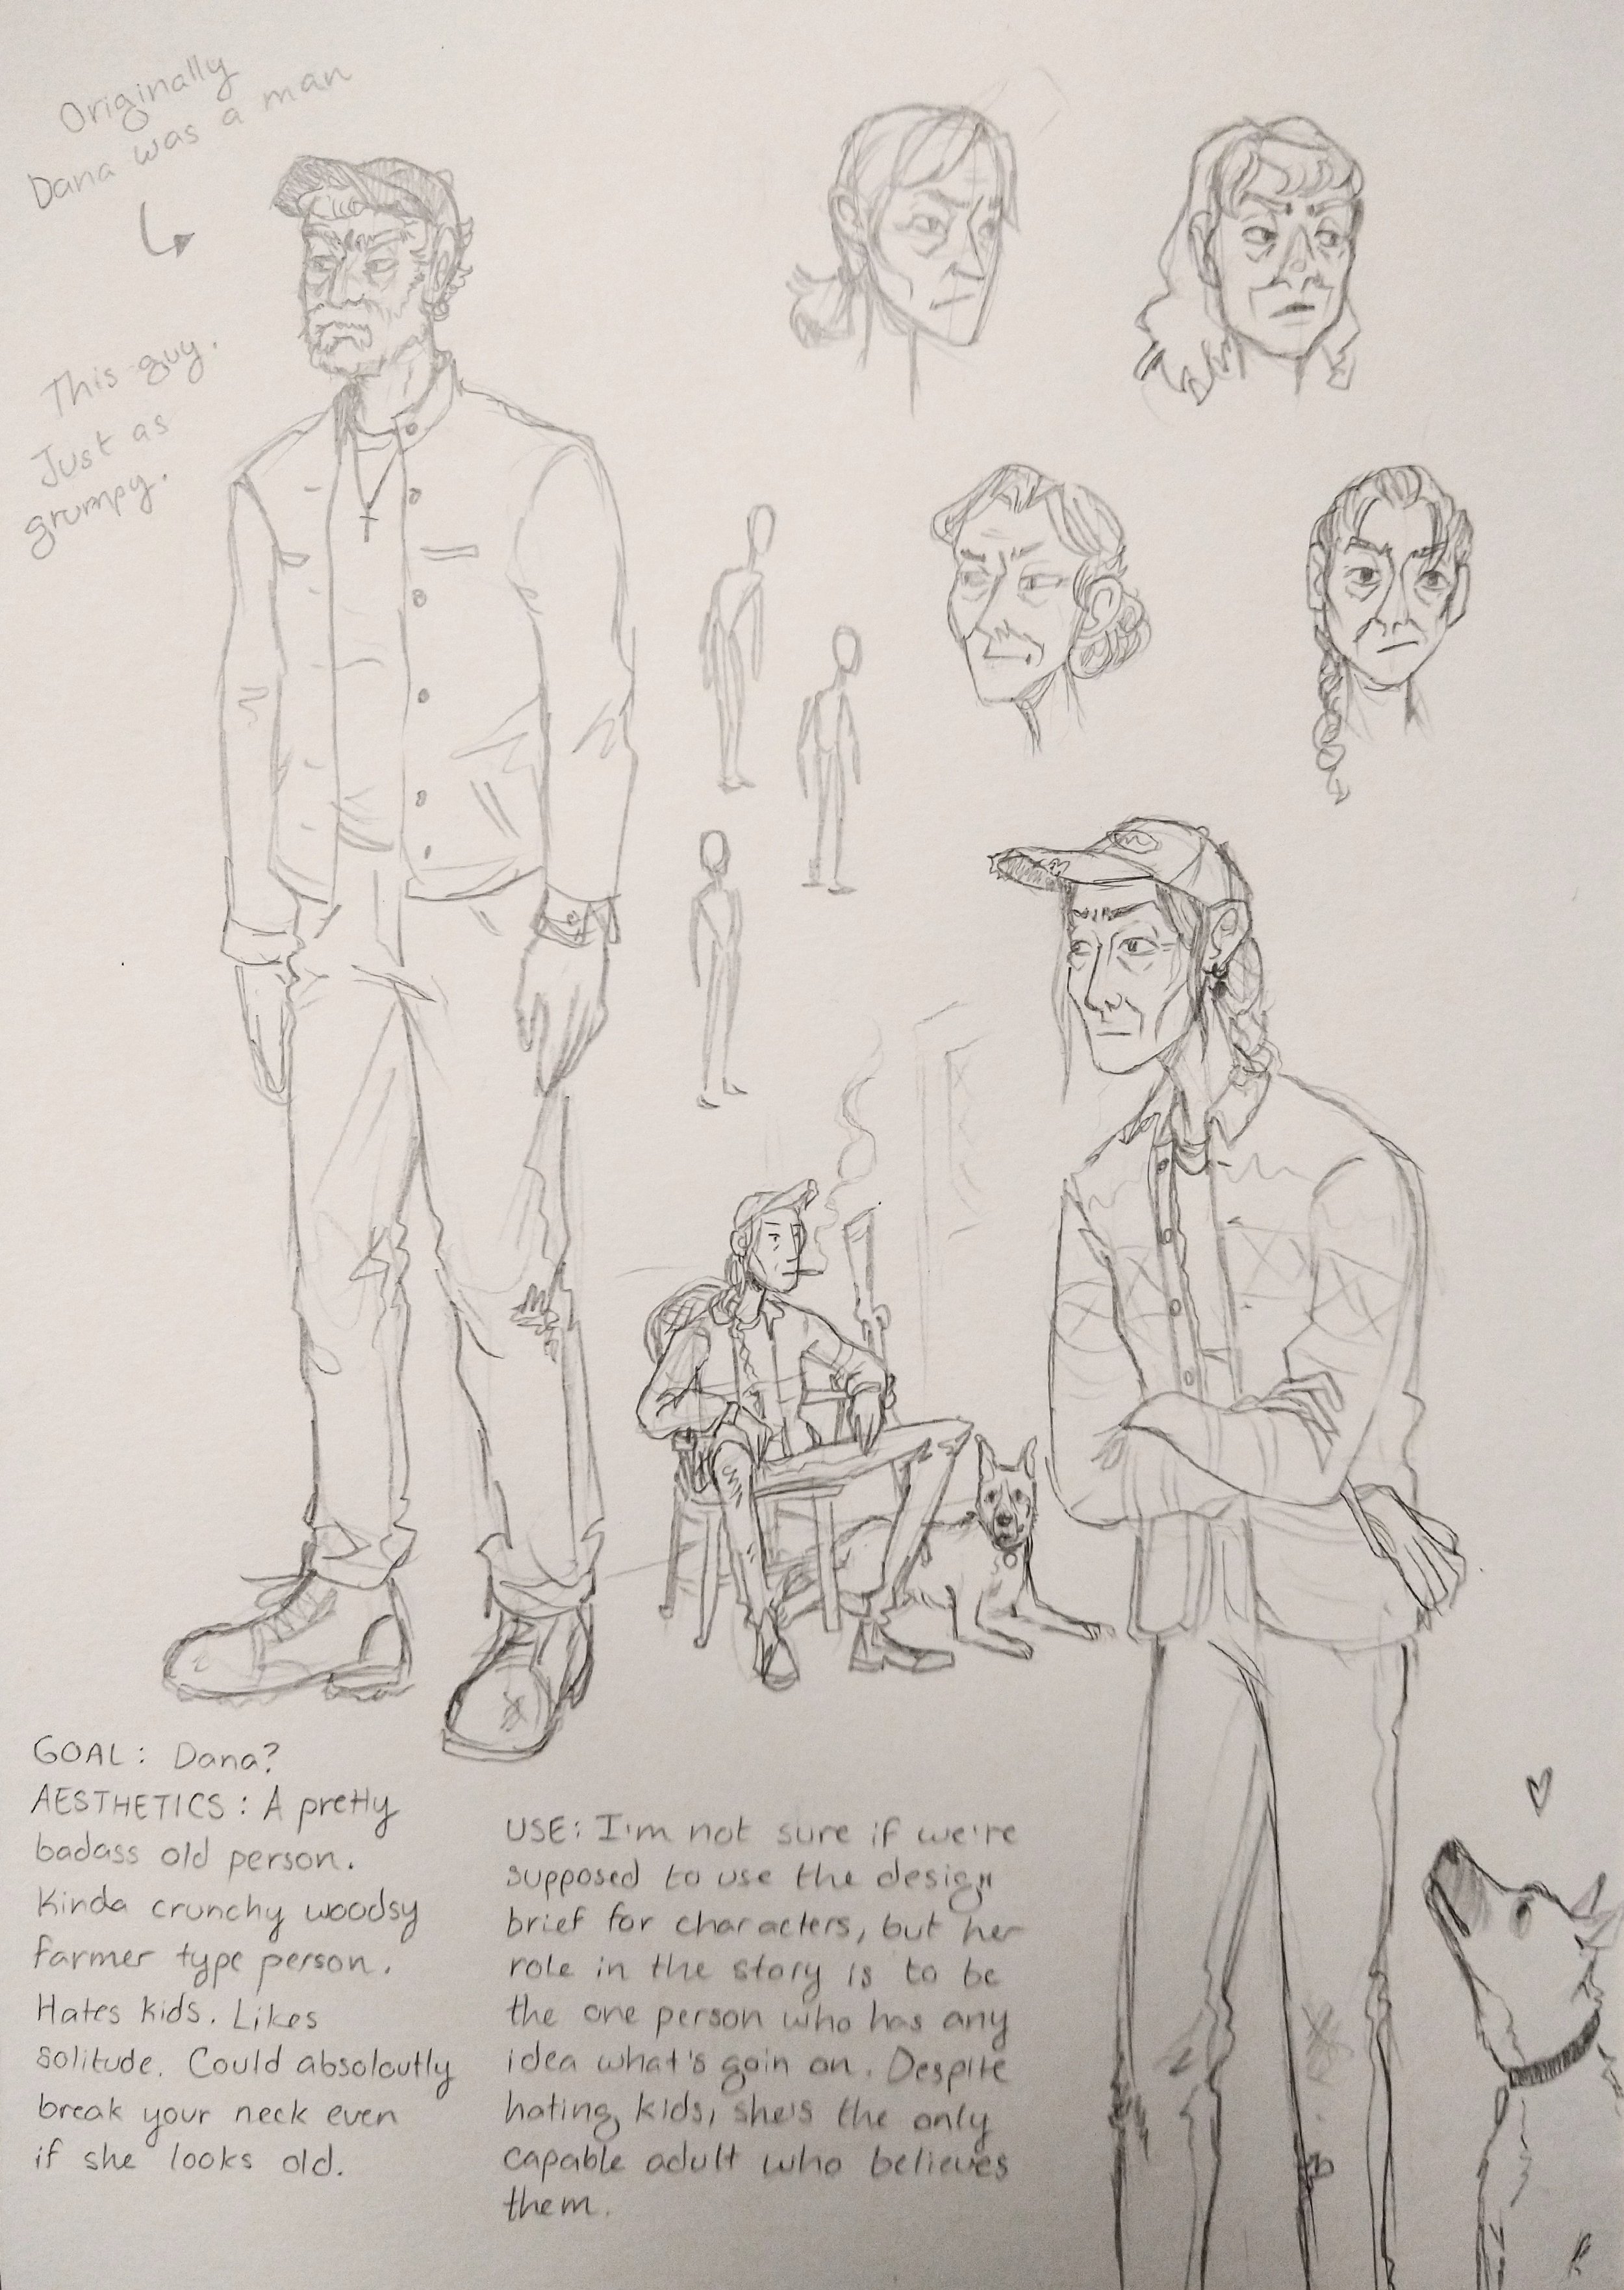 Originally
Dana was a man
This guy.
Just as
grumpy.
GOAL: Dana?
AESTHETICS: A pretty
badass old person.
Kinda crunchy woodsy
farmer type person.
Hates kids. Likes
solitude. Could absoloutly
break your neck even
if she looks old.
USE: I'm not sure if we're
supposed to use the design
brief for characters, but her
role in the story is to be
the one person who has any
idea what's goin on. Despite
hating kids, she's the only
capable adult who believes
them.